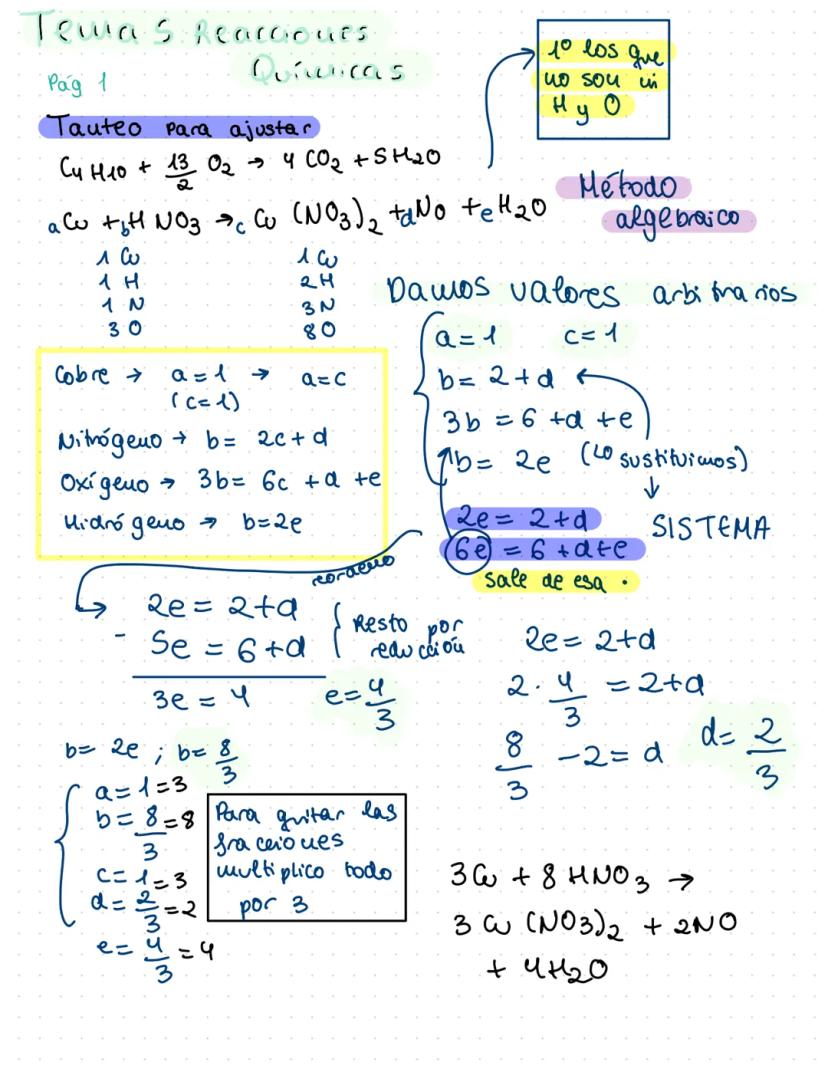 Tema 5 Reacciones
Químicas
Pág 1
1º los que
no son ni
H y O
Tanteo para ajustar
C4H10 + 13/2 O2 → 4 CO2 + 5H2O
Método
algebraico
aCu + bHNO3 → cCu (NO3)2 + dNo + eH2O
1 Cu 1 Cu
1 H 2H
1 N 3N
3 O 8O
Damos valores arbitrarios
a = 1 c = 1
b = 2 + d
3b = 6 + d + e
b = 2e (Lo sustituimos)
Cobre → a = 1 → a = c
(c = 1)
Nitrógeno → b = 2c + d
Oxígeno → 3b = 6c + d + e
Hidrógeno → b = 2e
2e = 2 + d
6e = 6 + d + e
SISTEMA
sale de esa.
reordeno
2e = 2 + d
- 5e = 6 + d
Resto por
reducción
3e = 4 e = 4/3
2e = 2 + d
2 · 4/3 = 2 + d
8/3 - 2 = d d = 2/3
b = 2e ; b = 8/3
a = 1 = 3
b = 8/3 = 8
c = 1 = 3
d = 2/3 = 2
e = 4/3 = 4
Para quitar las
fracciones
multiplico todo
por 3
3Cu + 8 HNO3 →
3 Cu (NO3)2 + 2NO
+ 4H2O